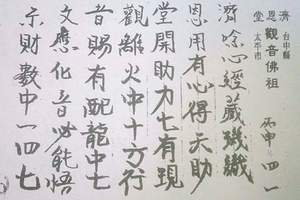 濟 台中縣
恩 觀音佛祖 丙申 四 一
堂 太平市
濟唸心經藏璣織
恩用有心得天助
堂開助力七有現
觀離火中十方行
音賜有配龍中七
文應化音必能悟
示財數中一四七